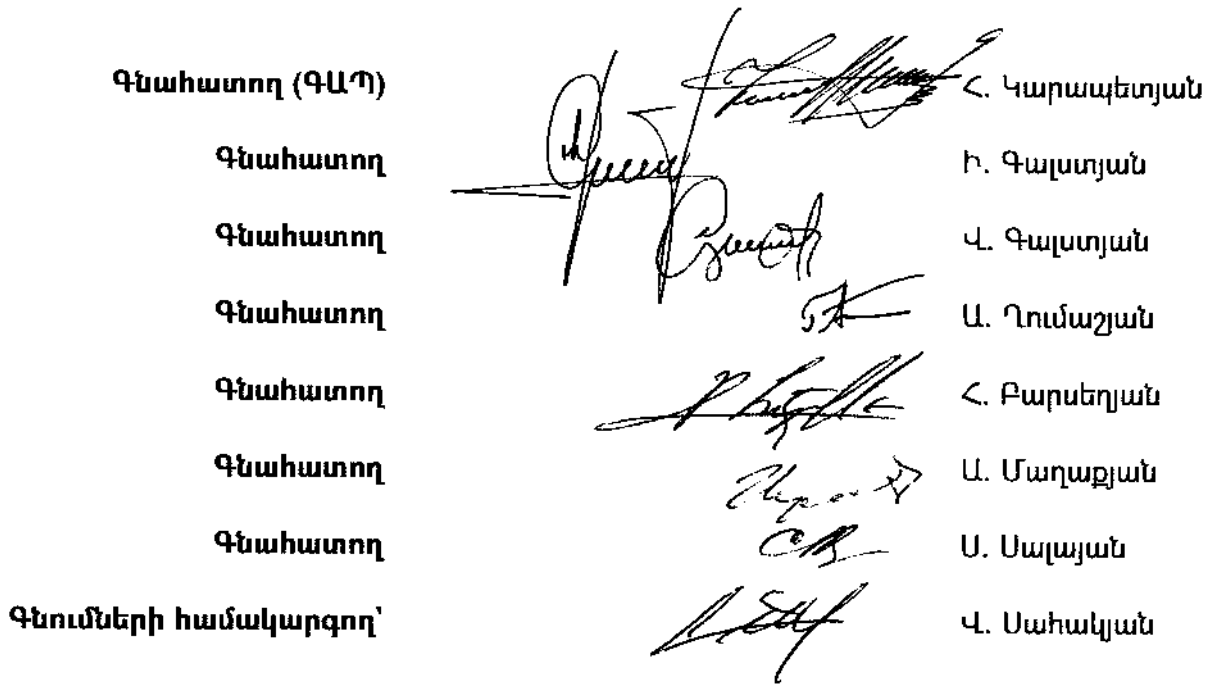 Գնահատող (ԳԱՊ) Հ. Կարապետյան
Գնահատող Ի. Գալստյան
Գնահատող Վ. Գալստյան
Գնահատող Ա. Ղումաշյան
Գնահատող Հ. Բարսեղյան
Գնահատող Ա. Մաղաքյան
Գնահատող Ս. Սալայան
Գնումների համակարգող՝ Վ. Սահակյան